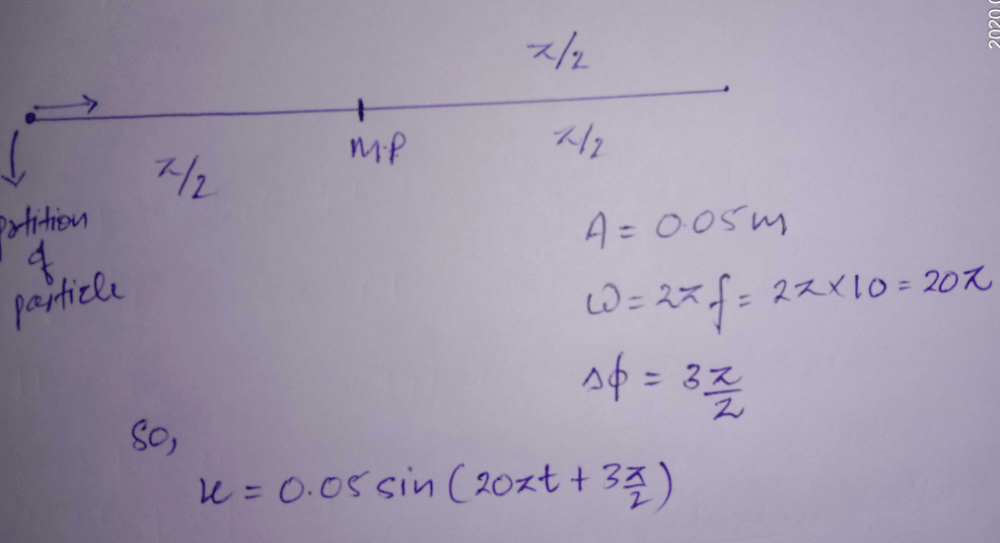 π/2
M.P
π/2
π/2
position
of
particle
A = 0.05m
ω = 2πf = 2π×10 = 20π
Δφ = 3π/2
so,
x = 0.05 sin (20πt + 3π/2)